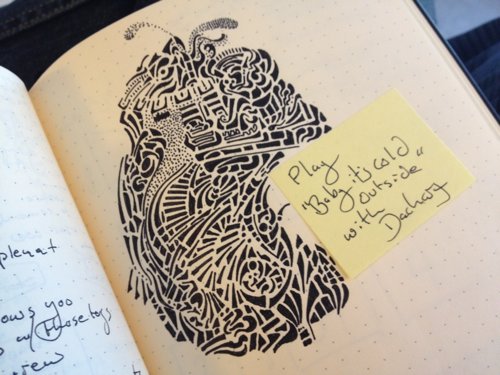 Play
"Baby it's cold
outside"
with
Dachary
plenat
ows you
w/ those toys
view